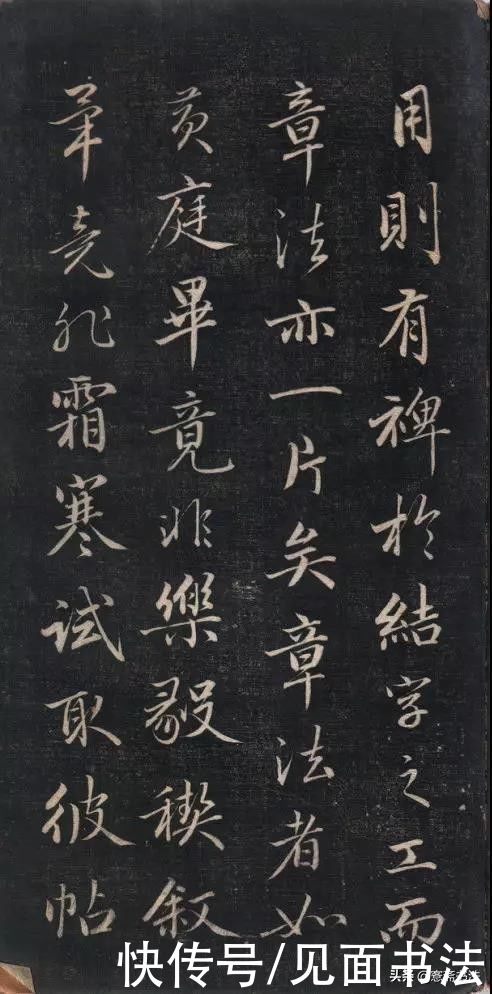 用則有裨於結字之工而
章法亦一片矣章法者如
黄庭畢竟非樂毅稧叙
畢竟非霜寒試取彼帖
快传号/见面书法
头条